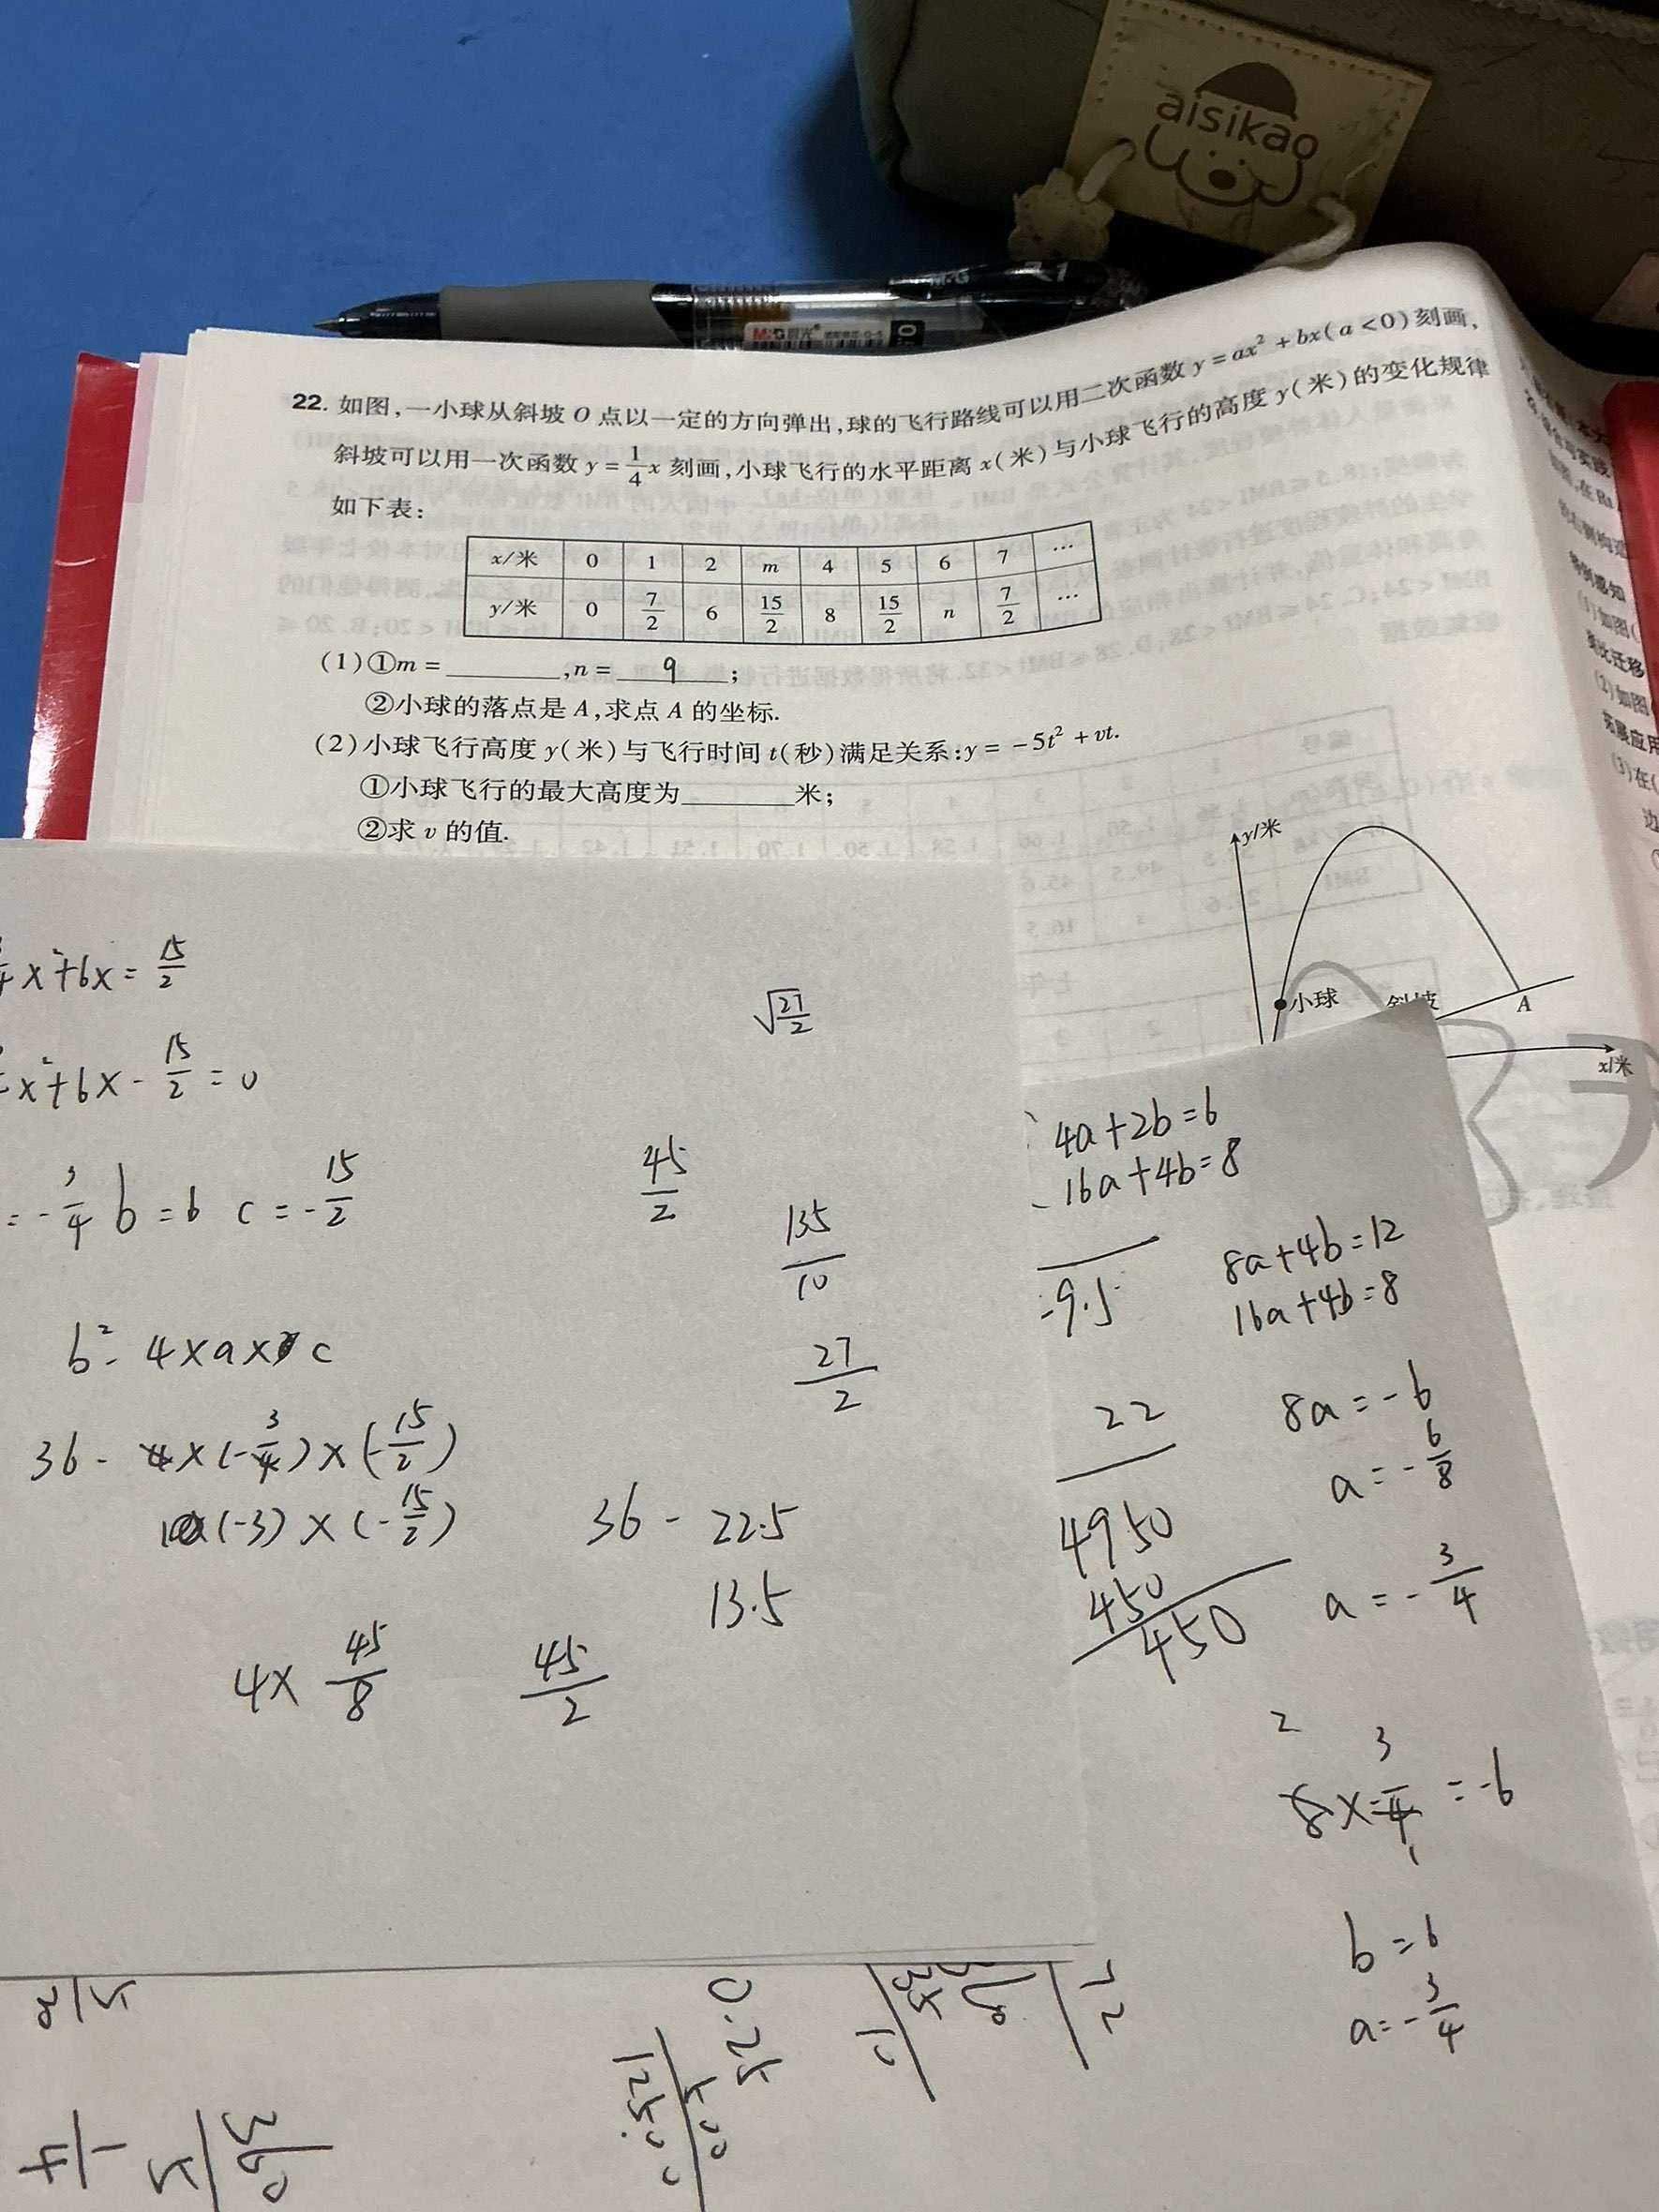 aisikao
M&G晨光
22. 如图,一小球从斜坡 O 点以一定的方向弹出,球的飞行路线可以用二次函数 y = ax² + bx(a < 0)刻画,
斜坡可以用一次函数 y = 1/4 x 刻画,小球飞行的水平距离 x(米)与小球飞行的高度 y(米)的变化规律
如下表:
x/米 0 1 2 m 4 5 6 7 …
y/米 0 7/2 6 15/2 8 15/2 n 7/2 …
(1)①m = ________,n = 9 ;
②小球的落点是 A,求点 A 的坐标.
(2)小球飞行高度 y(米)与飞行时间 t(秒)满足关系:y = -5t² + vt.
①小球飞行的最大高度为________米;
②求 v 的值.
y/米
小球
斜坡
A
x/米
x²+6x = 15/2
x²+6x - 15/2 = 0
= -3/4 b = 6 c = -15/2
b² - 4×a× c
36 - 4×(-3/4)×(-15/2)
(-3)×(-15/2)
36 - 22.5
13.5
4× 45/8
45/2
√27/2
45/2
135/10
27/2
4a+2b=6
16a+4b=8
-9.5
8a+4b=12
16a+4b=8
22
8a = -6
a = -6/8
4950
450
450
a = -3/4
2
3
8×-3/4 = -6
1
b = 6
a = -3/4
0.25